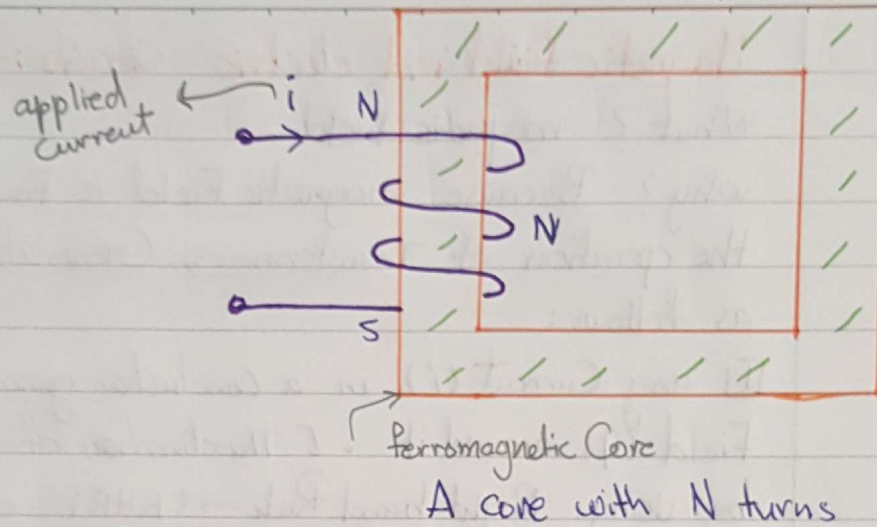 applied
current
i
N
N
S
ferromagnetic Core
A core with N turns